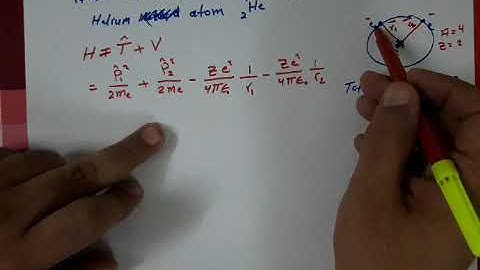 Helium atom ₂He
H = T̂ + V
= P̂₁²/2mₑ + P̂₂²/2mₑ - Ze²/4πε₀ 1/r₁ - Ze²/4πε₀ 1/r₂
r₁
A=4
Z=2